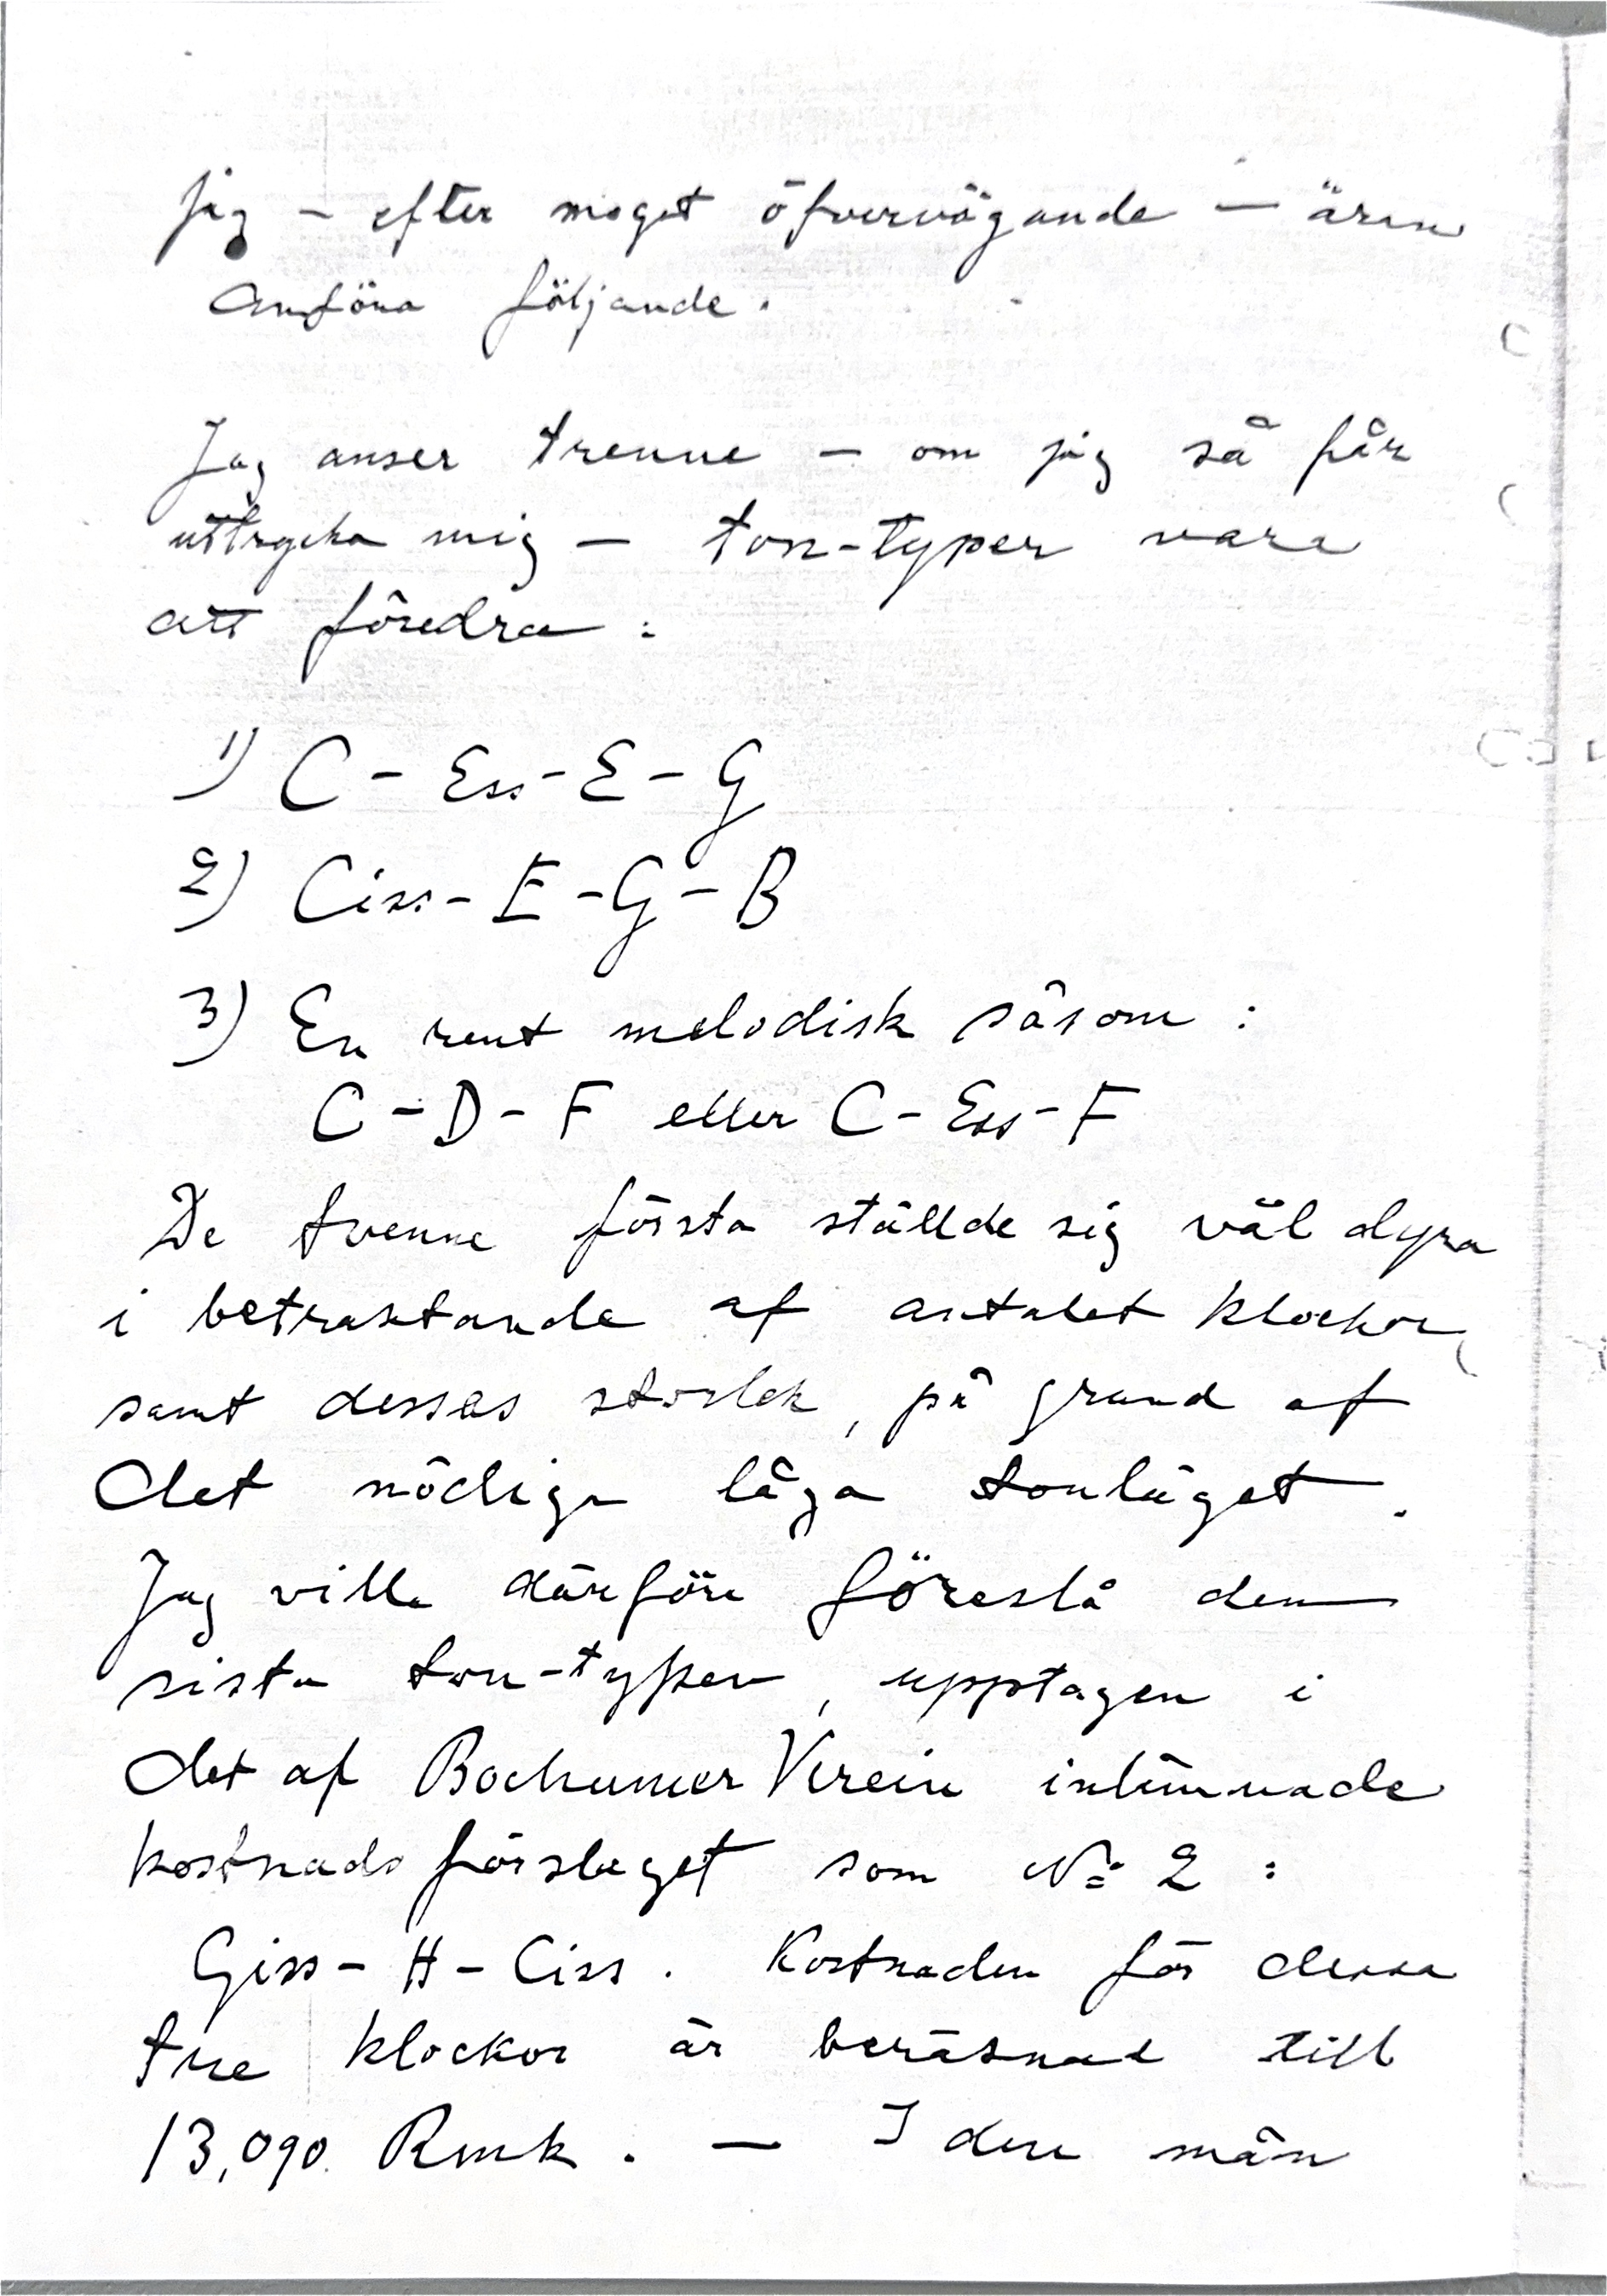 jag – efter moget öfvervägande – äran
anföra följande.
Jag anser trenne – om jag så får
uttrycka mig – ton-typer vara
att föredra:
1) C - Ess - E - G
2) Ciss - E - G - B
3) En rent melodisk såsom:
C - D - F eller C - Ess - F
De tvenne första ställde sig väl dyra
i betraktande af antalet klockor
samt dessas storlek, på grund af
det nödiga låga tonläget.
Jag ville därföre föreslå den
sista ton-typen, upptagen i
det af Bochumer Verein inlämnade
kostnadsförslaget som No 2:
Giss - H - Ciss. Kostnaden för dessa
tre klockor är beräknad till
13,090 Rmk. — I den mån